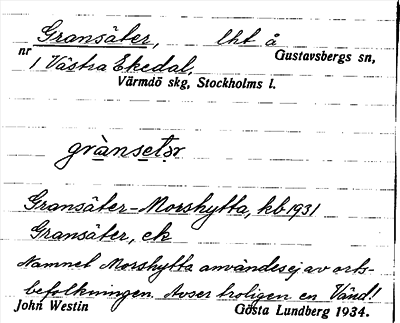 Gransäter, lht å
nr Gustavsbergs sn,
1 Västra Ekedal,
Värmdö skg, Stockholms l.
grànsetər
Gransäter-Morshytta, kb 1931
Gransäter, ek
Namnet Morshytta användes ej av orts-
befolkningen. Avser troligen en Vänd!
John Westin Gösta Lundberg 1934.